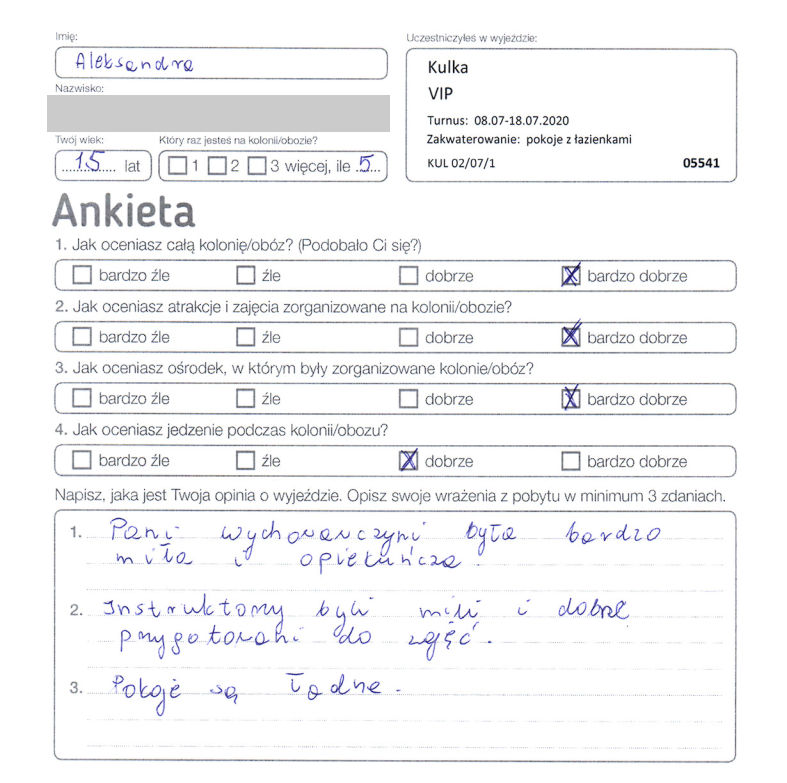 Imię:
Aleksandra
Uczestniczyłeś w wyjeździe:
Kulka
VIP
Turnus: 08.07-18.07.2020
Zakwaterowanie: pokoje z łazienkami
KUL 02/07/1 05541
Nazwisko:
Twój wiek:
15 lat
Który raz jesteś na kolonii/obozie?
1 2 3 więcej, ile 5
Ankieta
1. Jak oceniasz całą kolonię/obóz? (Podobało Ci się?)
bardzo źle źle dobrze bardzo dobrze
2. Jak oceniasz atrakcje i zajęcia zorganizowane na kolonii/obozie?
bardzo źle źle dobrze bardzo dobrze
3. Jak oceniasz ośrodek, w którym były zorganizowane kolonie/obóz?
bardzo źle źle dobrze bardzo dobrze
4. Jak oceniasz jedzenie podczas kolonii/obozu?
bardzo źle źle dobrze bardzo dobrze
Napisz, jaka jest Twoja opinia o wyjeździe. Opisz swoje wrażenia z pobytu w minimum 3 zdaniach.
1. Pani wychowawczyni była bardzo
miła i opiekuńcza.
2. Instruktorzy byli mili i dobrze
przygotowani do zajęć.
3. Pokoje są ładne.